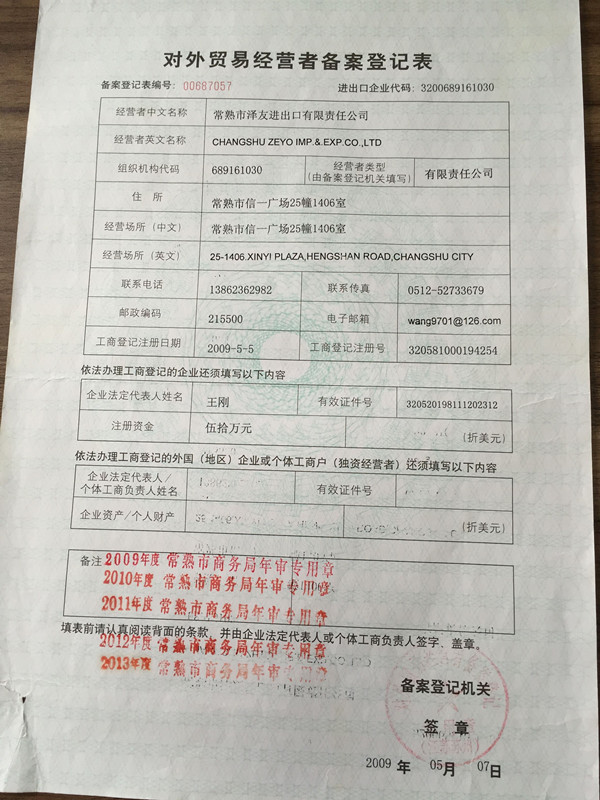 对外贸易经营者备案登记表
备案登记表编号: 00687057 进出口企业代码: 3200689161030
经营者中文名称 常熟市泽友进出口有限责任公司
经营者英文名称 CHANGSHU ZEYO IMP.&.EXP.CO.,LTD
组织机构代码 689161030 经营者类型 (由备案登记机关填写) 有限责任公司
住 所 常熟市信一广场25幢1406室
经营场所 (中文) 常熟市信一广场25幢1406室
经营场所 (英文) 25-1406.XINYI PLAZA,HENGSHAN ROAD,CHANGSHU CITY
联系电话 13862362982 联系传真 0512-52733679
邮政编码 215500 电子邮箱 wang9701@126.com
工商登记注册日期 2009-5-5 工商登记注册号 320581000194254
依法办理工商登记的企业还须填写以下内容
企业法定代表人姓名 王刚 有效证件号 320520198111202312
注册资金 伍拾万元 (折美元)
依法办理工商登记的外国 (地区) 企业或个体工商户 (独资经营者) 还须填写以下内容
企业法定代表人/
个体工商负责人姓名 有效证件号
企业资产/个人财产 (折美元)
备注 2009年度 常熟市商务局年审专用章
2010年度 常熟市商务局年审专用章
2011年度 常熟市商务局年审专用章
填表前请认真阅读背面的条款，并由企业法定代表人或个体工商负责人签字、盖章。
2012年度 常熟市商务局年审专用章
2013年度 常熟市商务局年审专用章
备案登记机关
签 章
2009 年 05 月 07 日